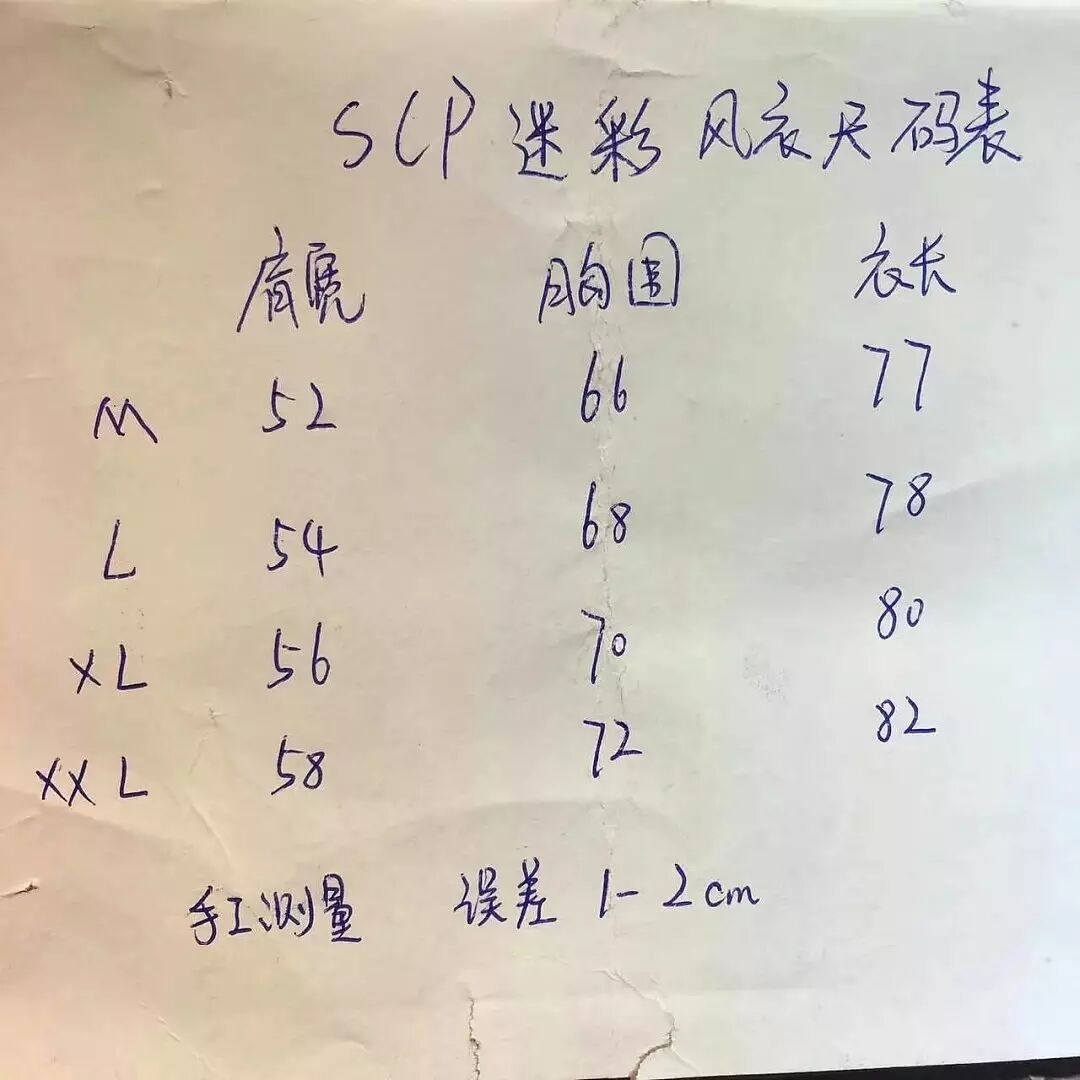 SCP 迷彩风衣尺码表
肩宽 胸围 衣长
M 52 66 77
L 54 68 78
XL 56 70 80
XXL 58 72 82
手工测量 误差 1-2cm